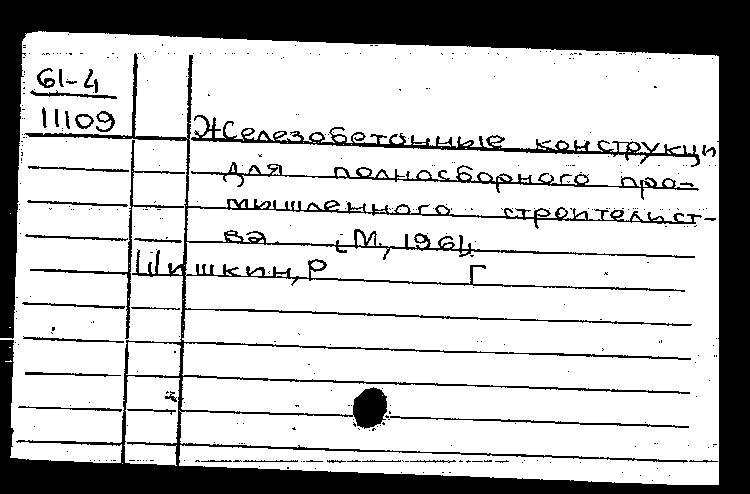 61-4
11109
Железобетонные конструкци
для полносборного про-
мышленного строительст-
ва. [М., 1964.
Шишкин, Р Г